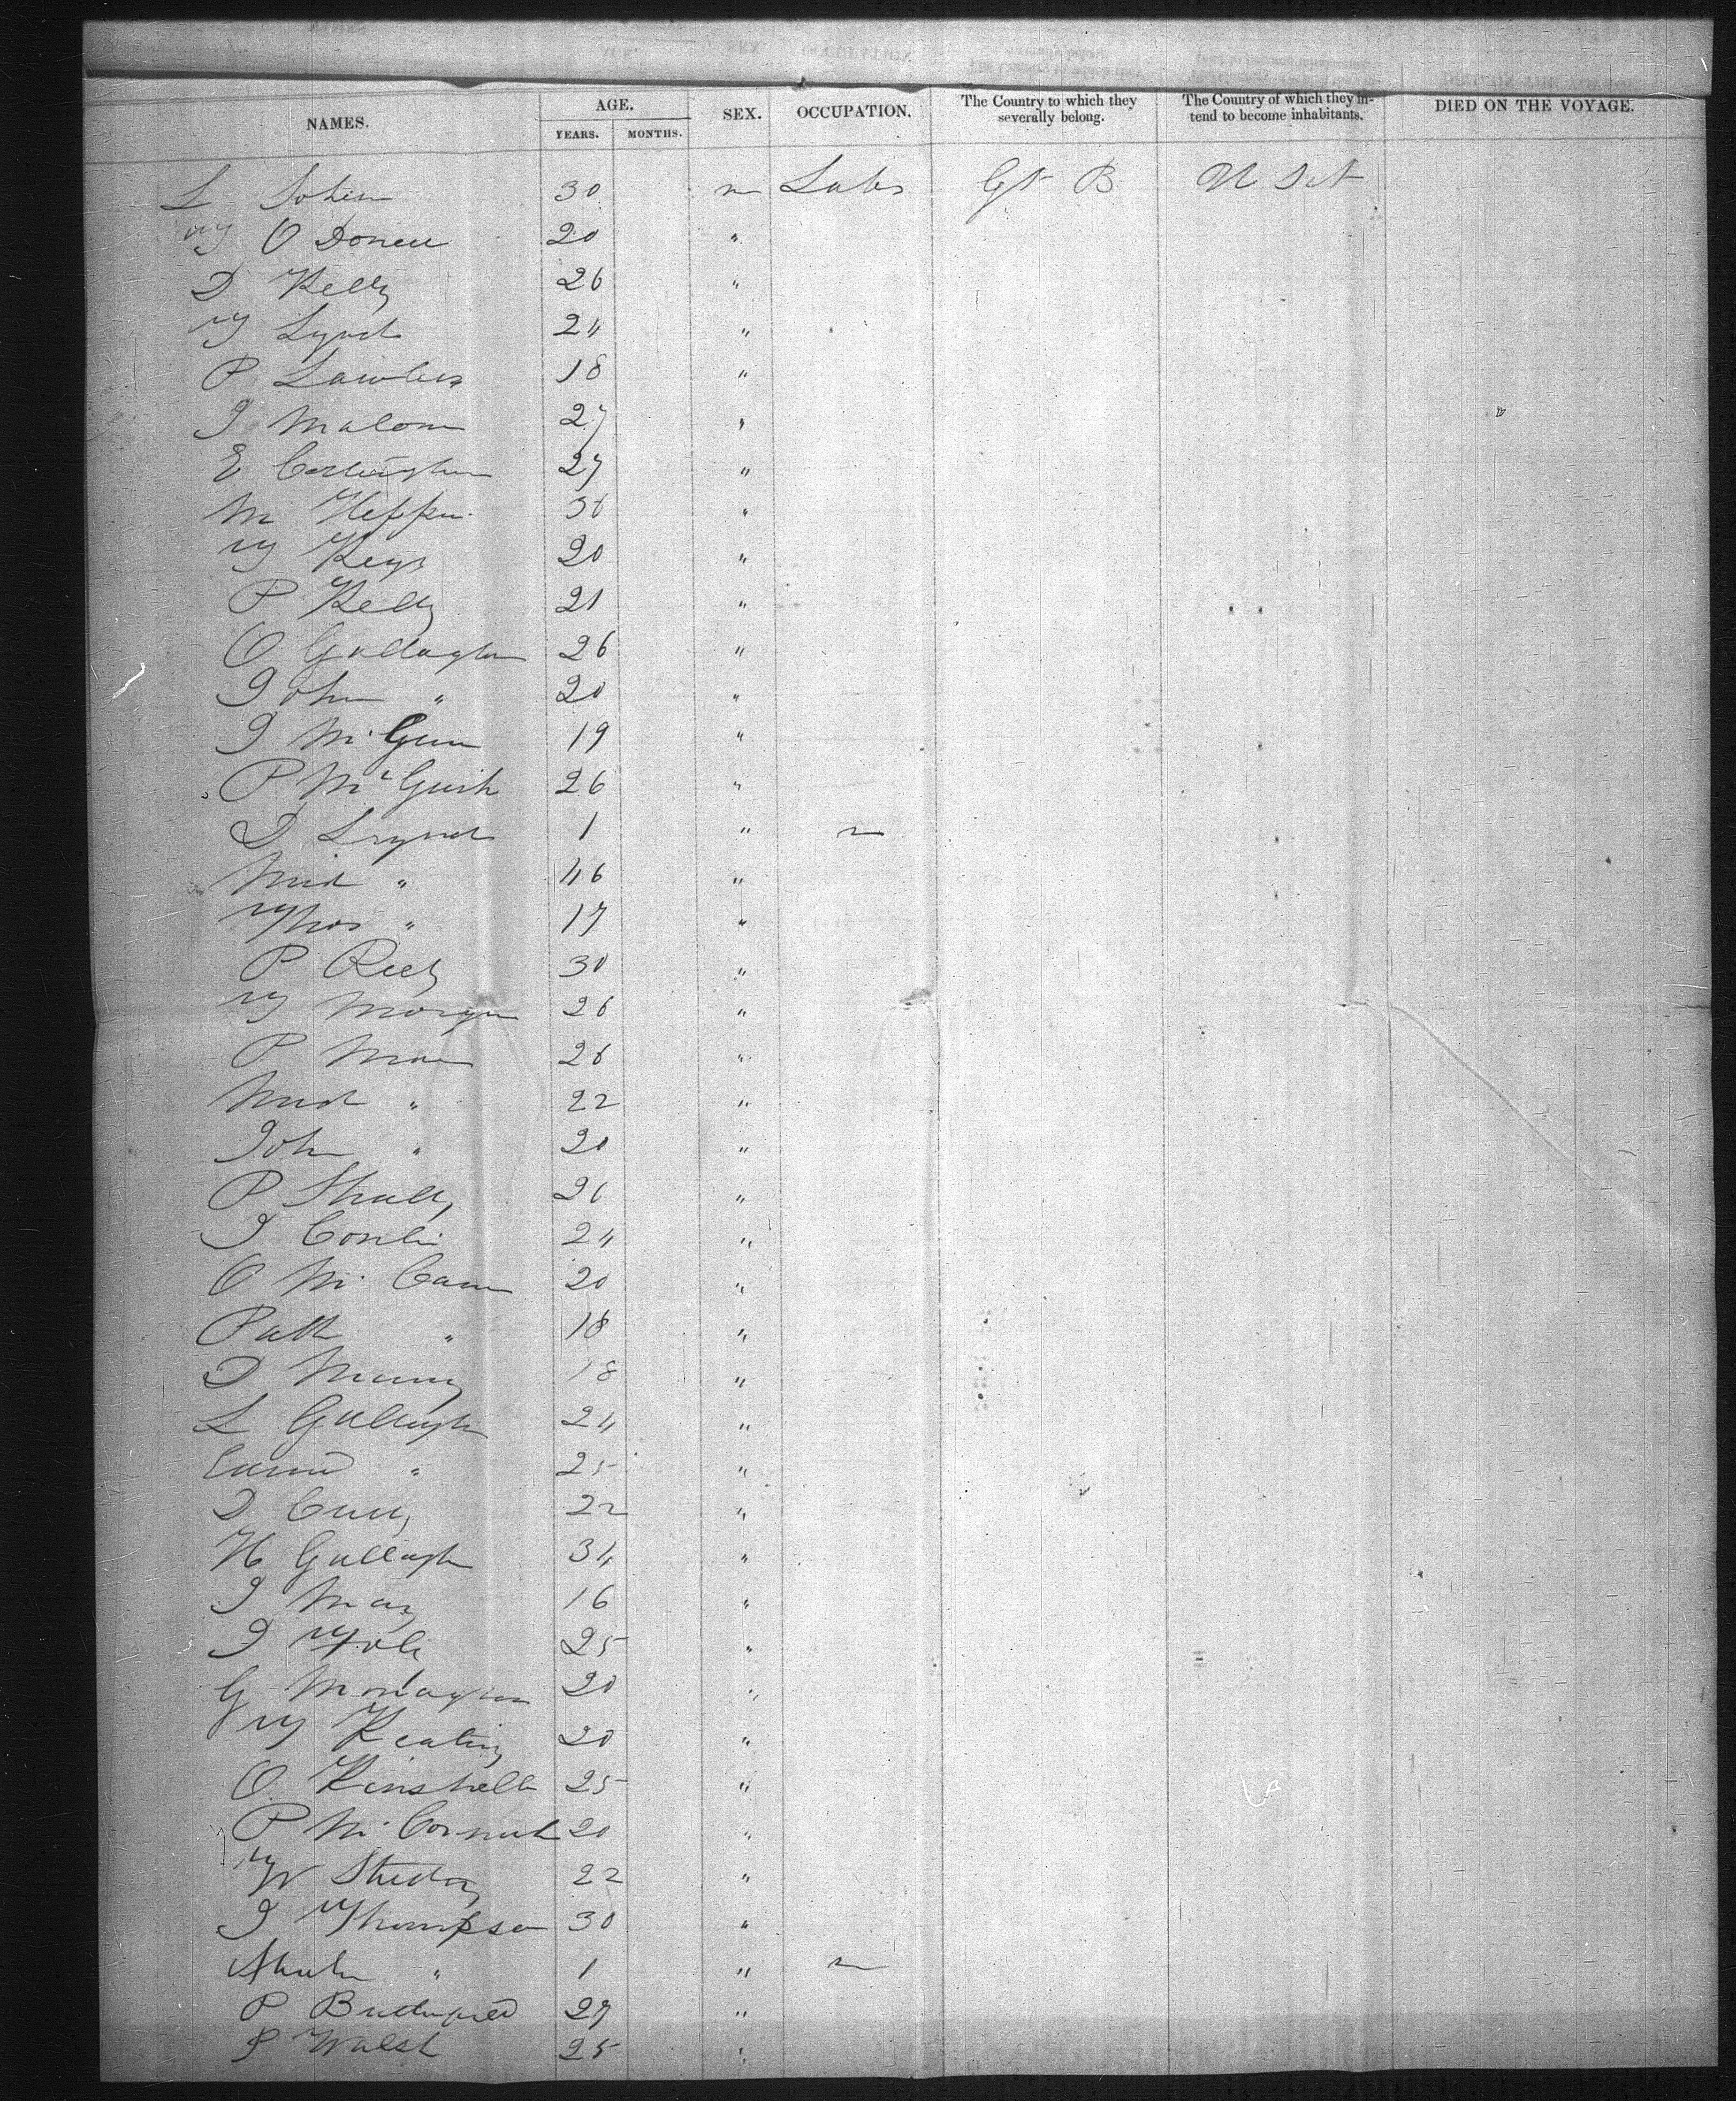 NAMES. AGE. YEARS. MONTHS. SEX. OCCUPATION. The Country to which they severally belong. The Country of which they intend to become inhabitants. DIED ON THE VOYAGE.
L 30 m Labr Gt B U St
T O Donell 20 "
D Kelly 26 "
T Lynch 24 "
P Lawler 18 "
J Malone 27 "
E 27 "
M Heffn 36 "
T Keys 20 "
P Kelly 21 "
O Gallagher 26 "
John " 20 "
J McGinn 19 "
P McGurk 26 "
D Lynch 1 " n
Mich " 46 "
Thos " 17 "
P Reely 30 "
T Morgan 26 "
P 26 "
Mich " 22 "
John " 20 "
P Skully 26 "
J Conlin 24 "
O McCann 20 "
Patk " 18 "
D 18 "
L Gallagher 24 "
Edmd " 25 "
D 22 "
H Gallagher 34 "
J May 16 "
J 25 "
G Monaghan 20 "
T Keating 20 "
O Kinshella 25 "
P McCormick 20 "
W 22 "
J Thompson 30 "
" 1 " n
P 27 "
P Walsh 25 "